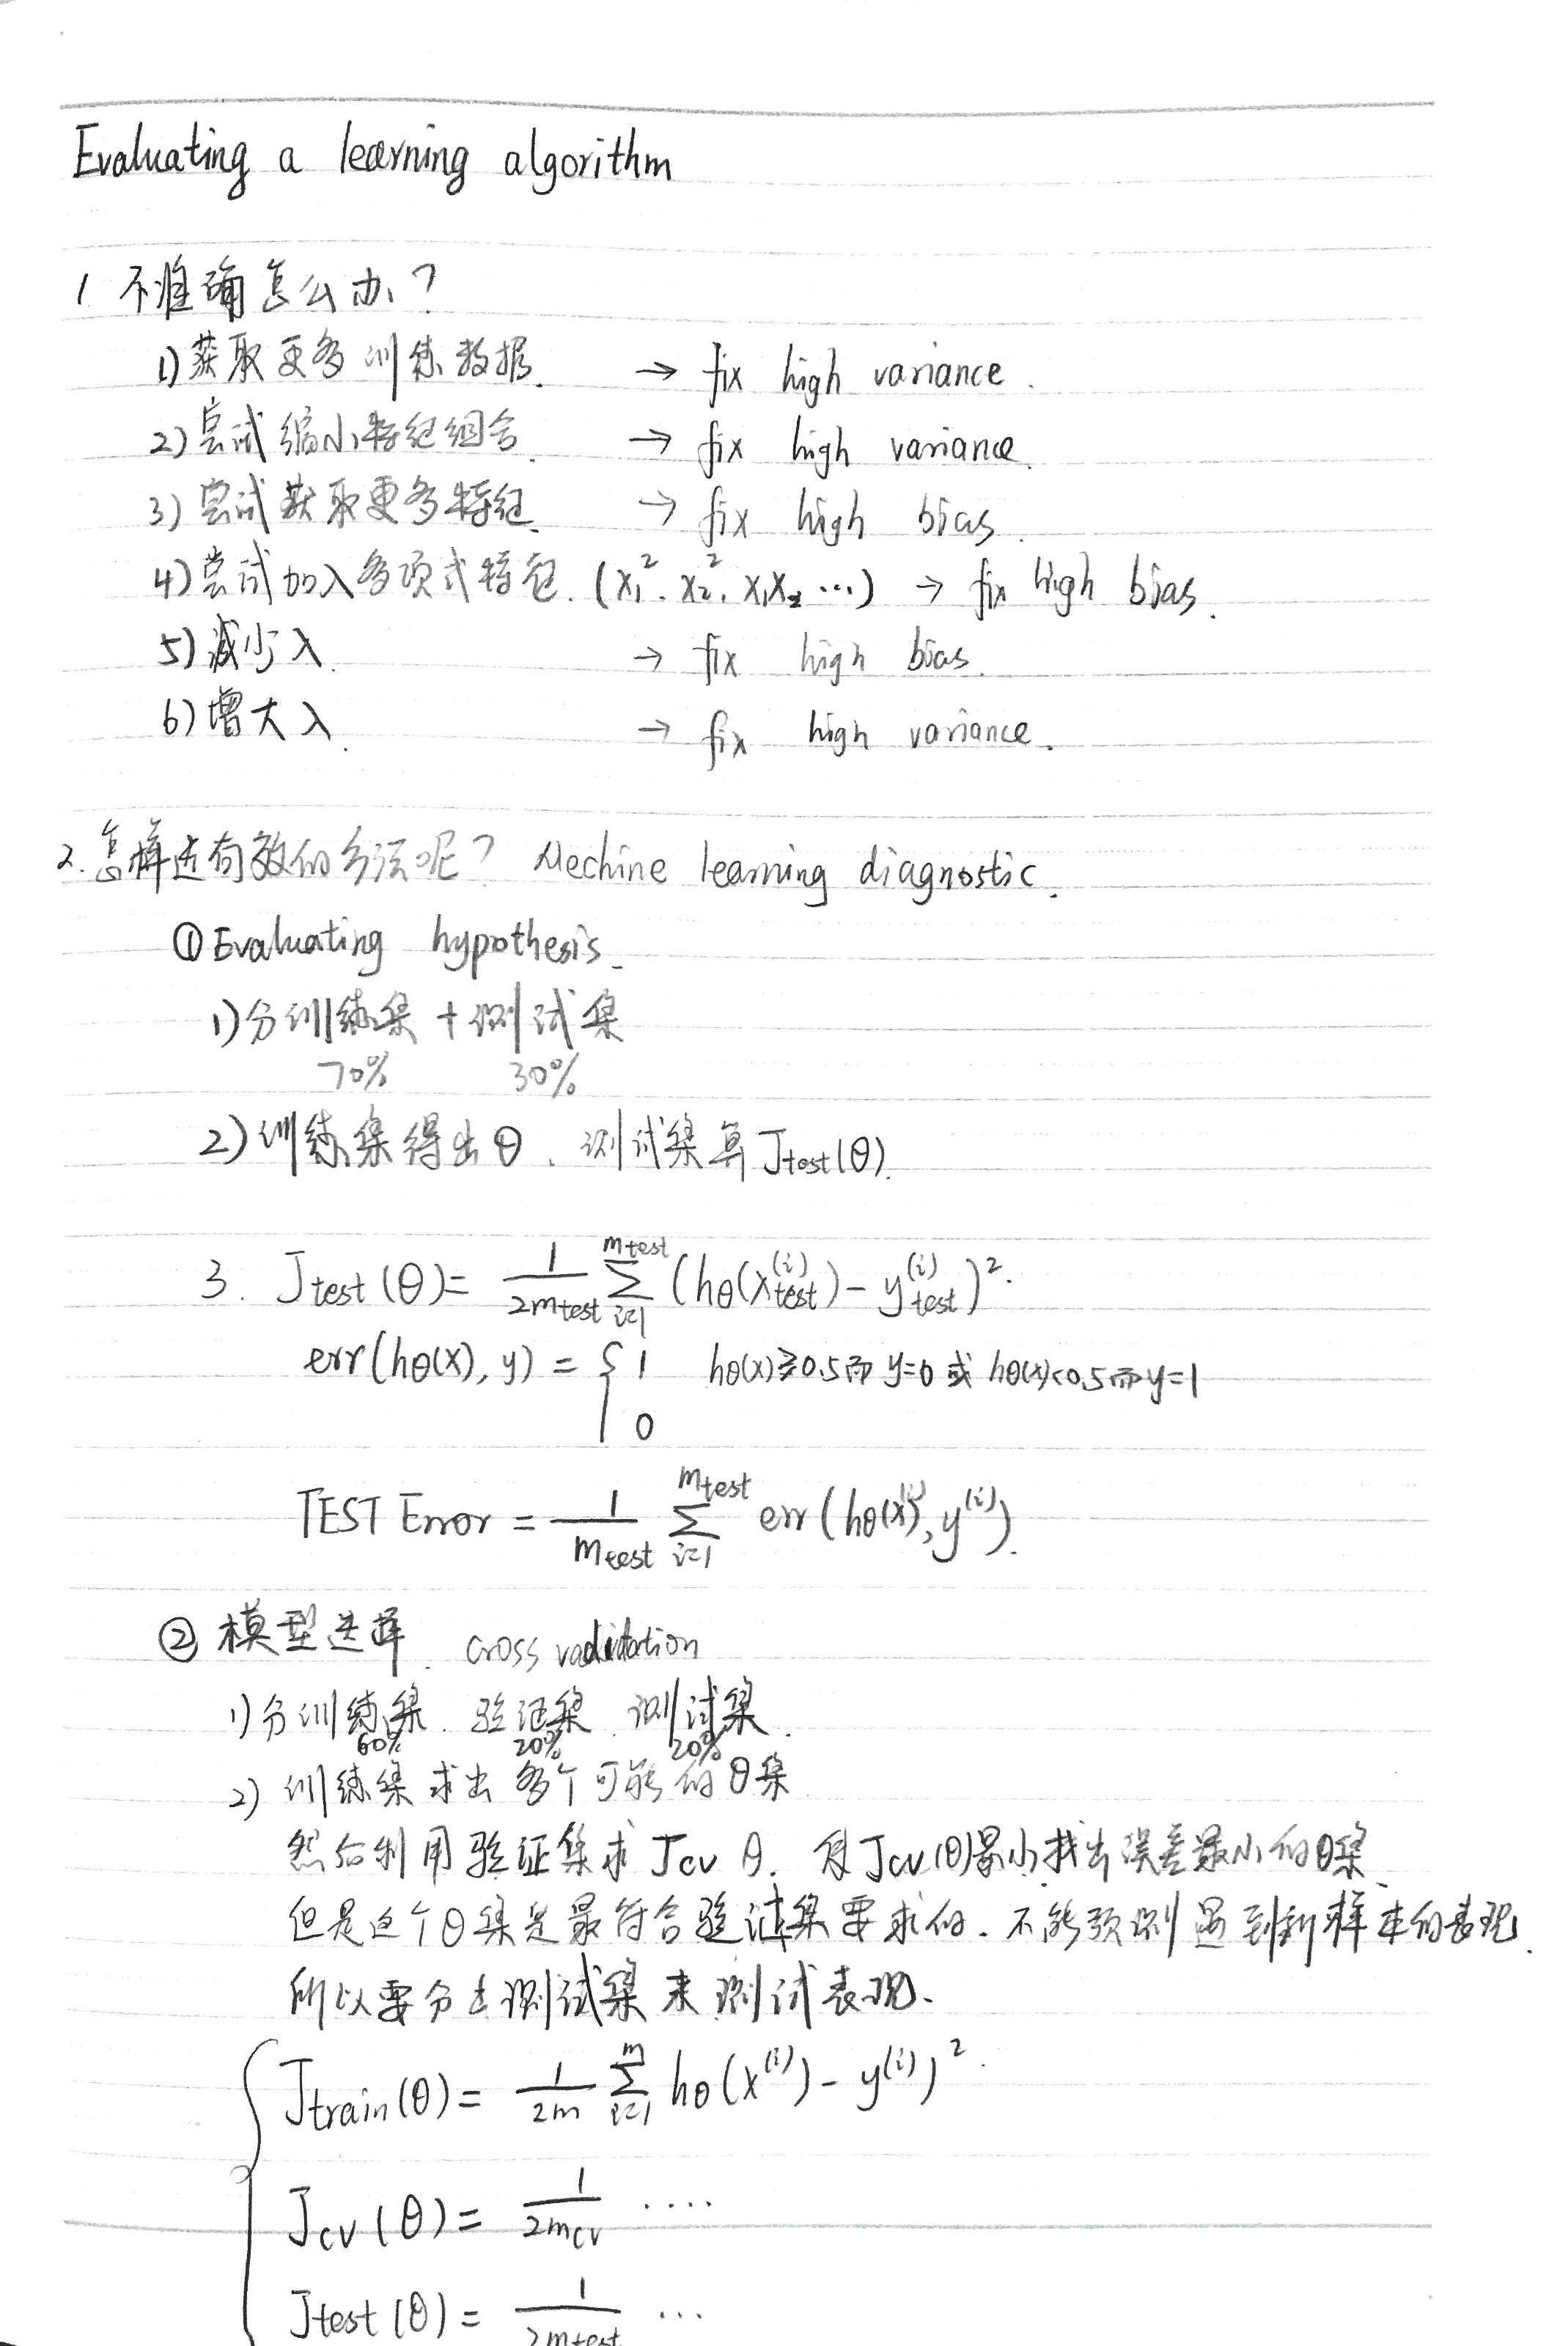 Evaluating a learning algorithm
1 不准确怎么办?
1)获取更多训练数据. → fix high variance.
2)尝试缩小特征组合. → fix high variance.
3)尝试获取更多特征. → fix high bias.
4)尝试加入多项式特征. (x₁², x₂², x₁x₂ ...) → fix high bias.
5)减少λ. → fix high bias.
6)增大λ. → fix high variance.
2.怎样选有效的方法呢? Mechine learning diagnostic.
① Evaluating hypothesis.
1)分训练集 + 测试集
70% 30%
2)训练集得出θ, 测试集算 Jtest(θ).
3. Jtest(θ) = 1/(2mtest) Σ_{i=1}^{mtest} (hθ(x_test^(i)) - y_test^(i))².
err(hθ(x), y) = { 1 hθ(x)≥0.5而 y=0 或 hθ(x)<0.5而y=1
0
TEST Error = 1/mtest Σ_{i=1}^{mtest} err(hθ(x^(i)), y^(i)).
② 模型选择. cross validation
1)分训练集. 验证集. 测试集.
60% 20% 20%
2) 训练集求出多个可能的θ集
然后利用验证集求 Jcv θ. Jcv(θ)最小找出误差最小的θ集.
但是这个θ集是最符合验证集要求的. 不能预测遇到新样本的表现.
所以要分出测试集来测试表现.
Jtrain(θ) = 1/(2m) Σ_{i=1}^{m} hθ(x^(i)) - y^(i))².
Jcv(θ) = 1/(2mcv) ....
Jtest(θ) = 1/(2mtest) ...